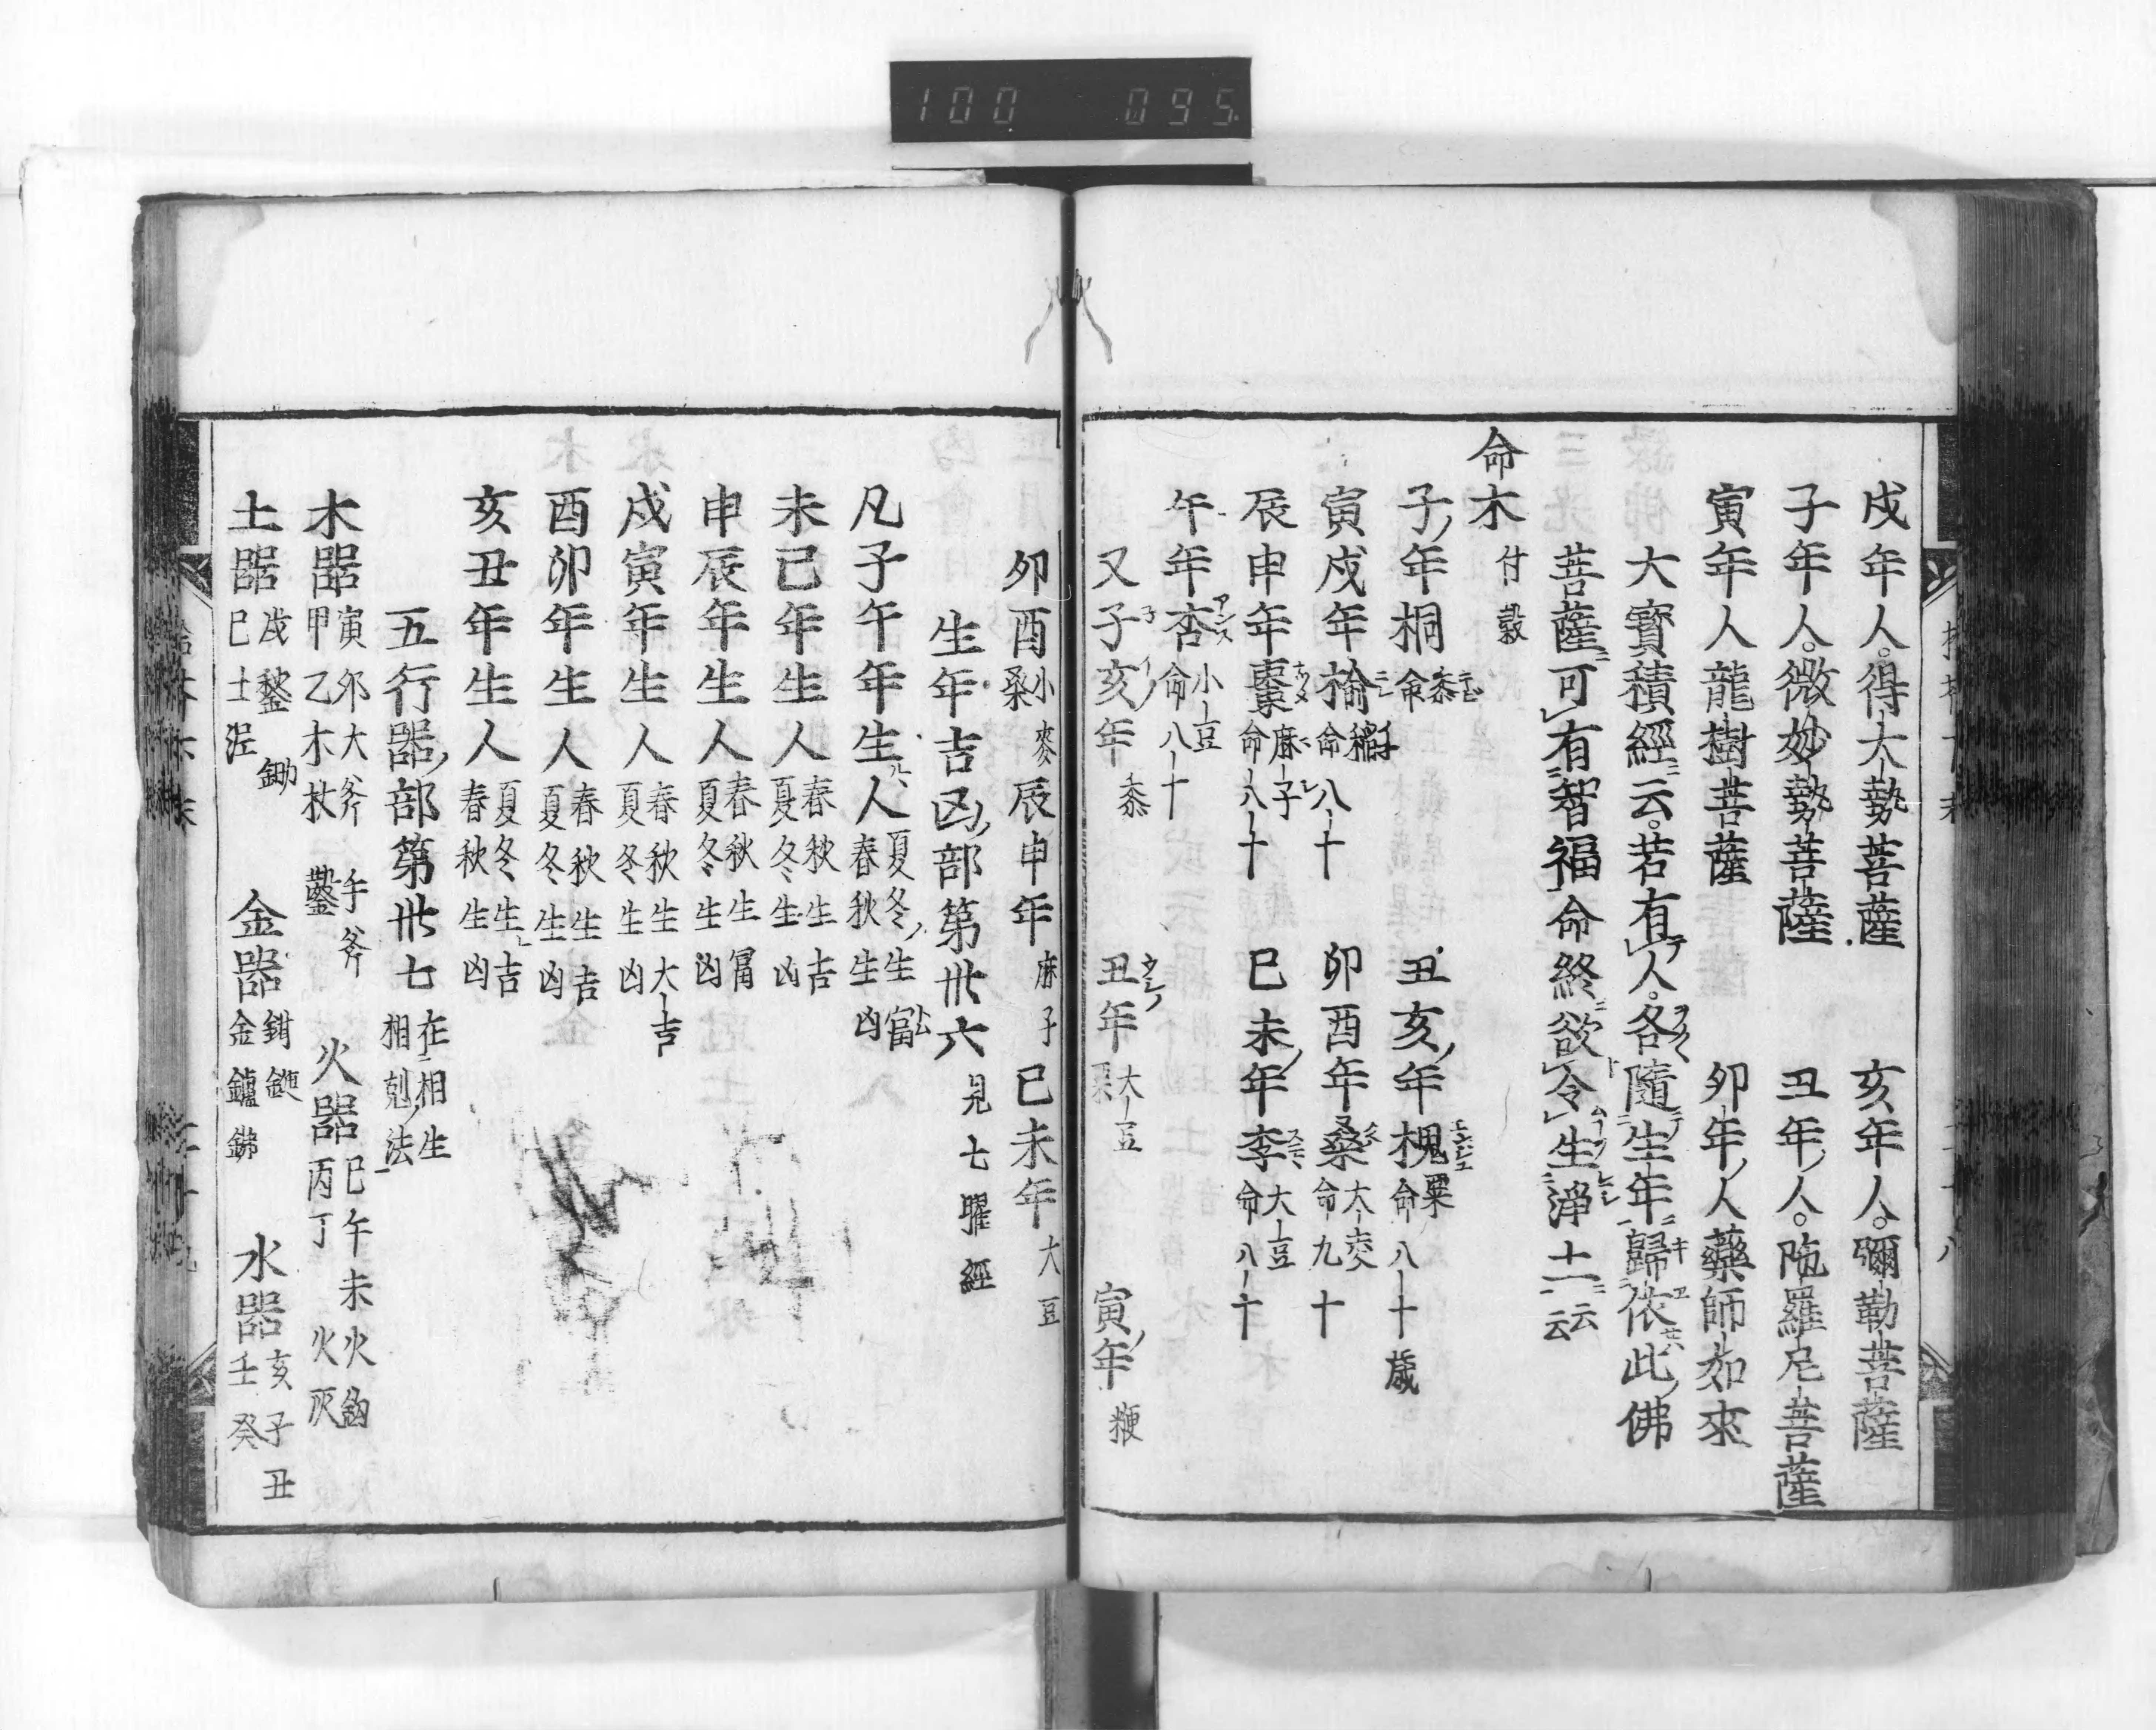 100 095
戌年人。得大勢菩薩 亥年人。彌勒菩薩
子年人。微妙勢菩薩 丑年人。陁羅尼菩薩
寅年人龍樹菩薩 卯年人藥師如來
大寳積經云。若有人。各隨生年歸依此佛
菩薩可有智福命終欲令生淨土云云
命木 付穀
子年桐 黍命 丑亥年槐 粟命八十歳
寅戌年楡 稲命八十 卯酉年桑 大麥命九十
辰申年棗 麻子命八十 巳未年李 大豆命八十
午年杏 小豆命八十
又子亥年 黍 丑年 大豆粟 寅年 粳
卯酉 小麥桑 辰申年 麻子 巳未年 大豆
生年吉凶部第卅六 見七曜經
凡子午年生人 夏冬生富 春秋生凶
未巳年生人 春秋生吉 夏冬生凶
申辰年生人 春秋生冨 夏冬生凶
戌寅年生人 春秋生大吉 夏冬生凶
酉卯年生人 春秋生吉 夏冬生凶
亥丑年生人 夏冬生吉 春秋生凶
五行器部第卅七 在相生相剋法
木器 寅卯大斧甲乙木枚 手斧鑿 火器 巳午未火 丙丁火灰
土器 戊 鋤 巳土泥 金器 金鑪 水器 亥子丑壬癸